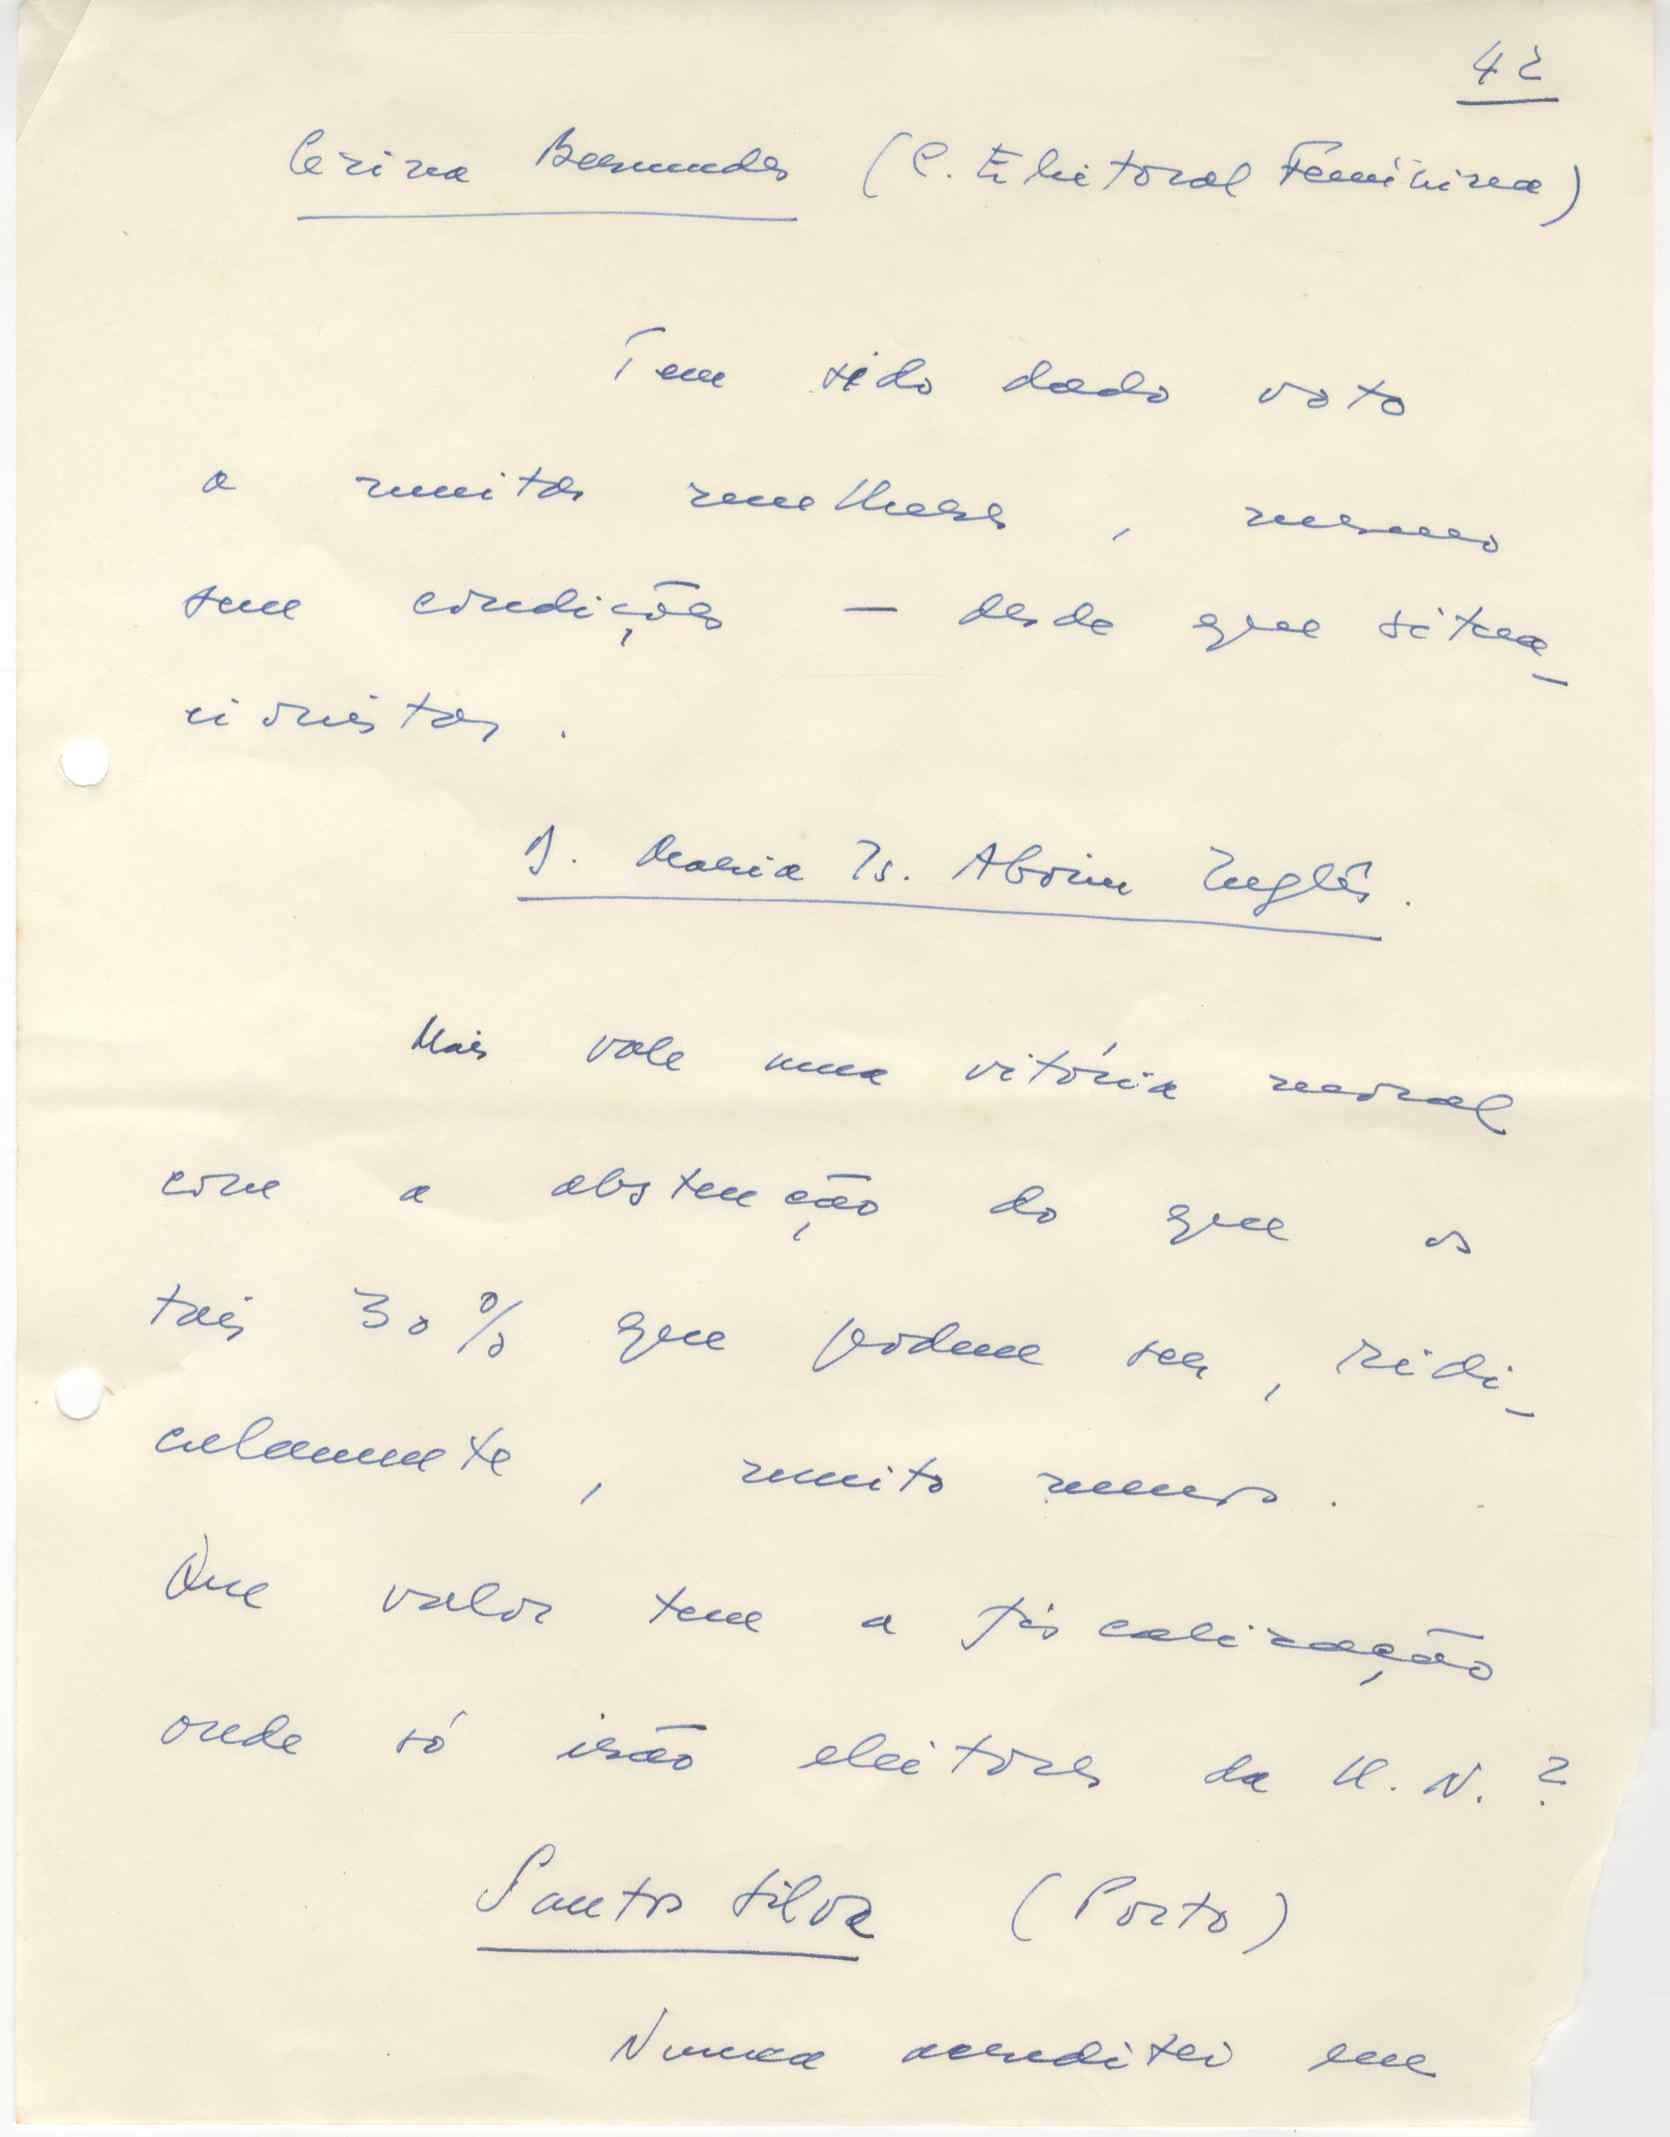 42
Cesina Bermudes (C. Eleitoral Feminina)
Tem sido dado voto
a muitas mulheres, mesmo
sem condições — desde que situa-
cionistas.
D. Maria Is. Aboim Inglês.
Mais vale uma vitória moral
com a abstenção do que os
tais 30% que podem ser, ridi-
culamente, muito menos.
Que valor tem a fiscalização
onde só irão eleitores da U. N.?
Santos Silva (Porto)
Nunca acreditei em